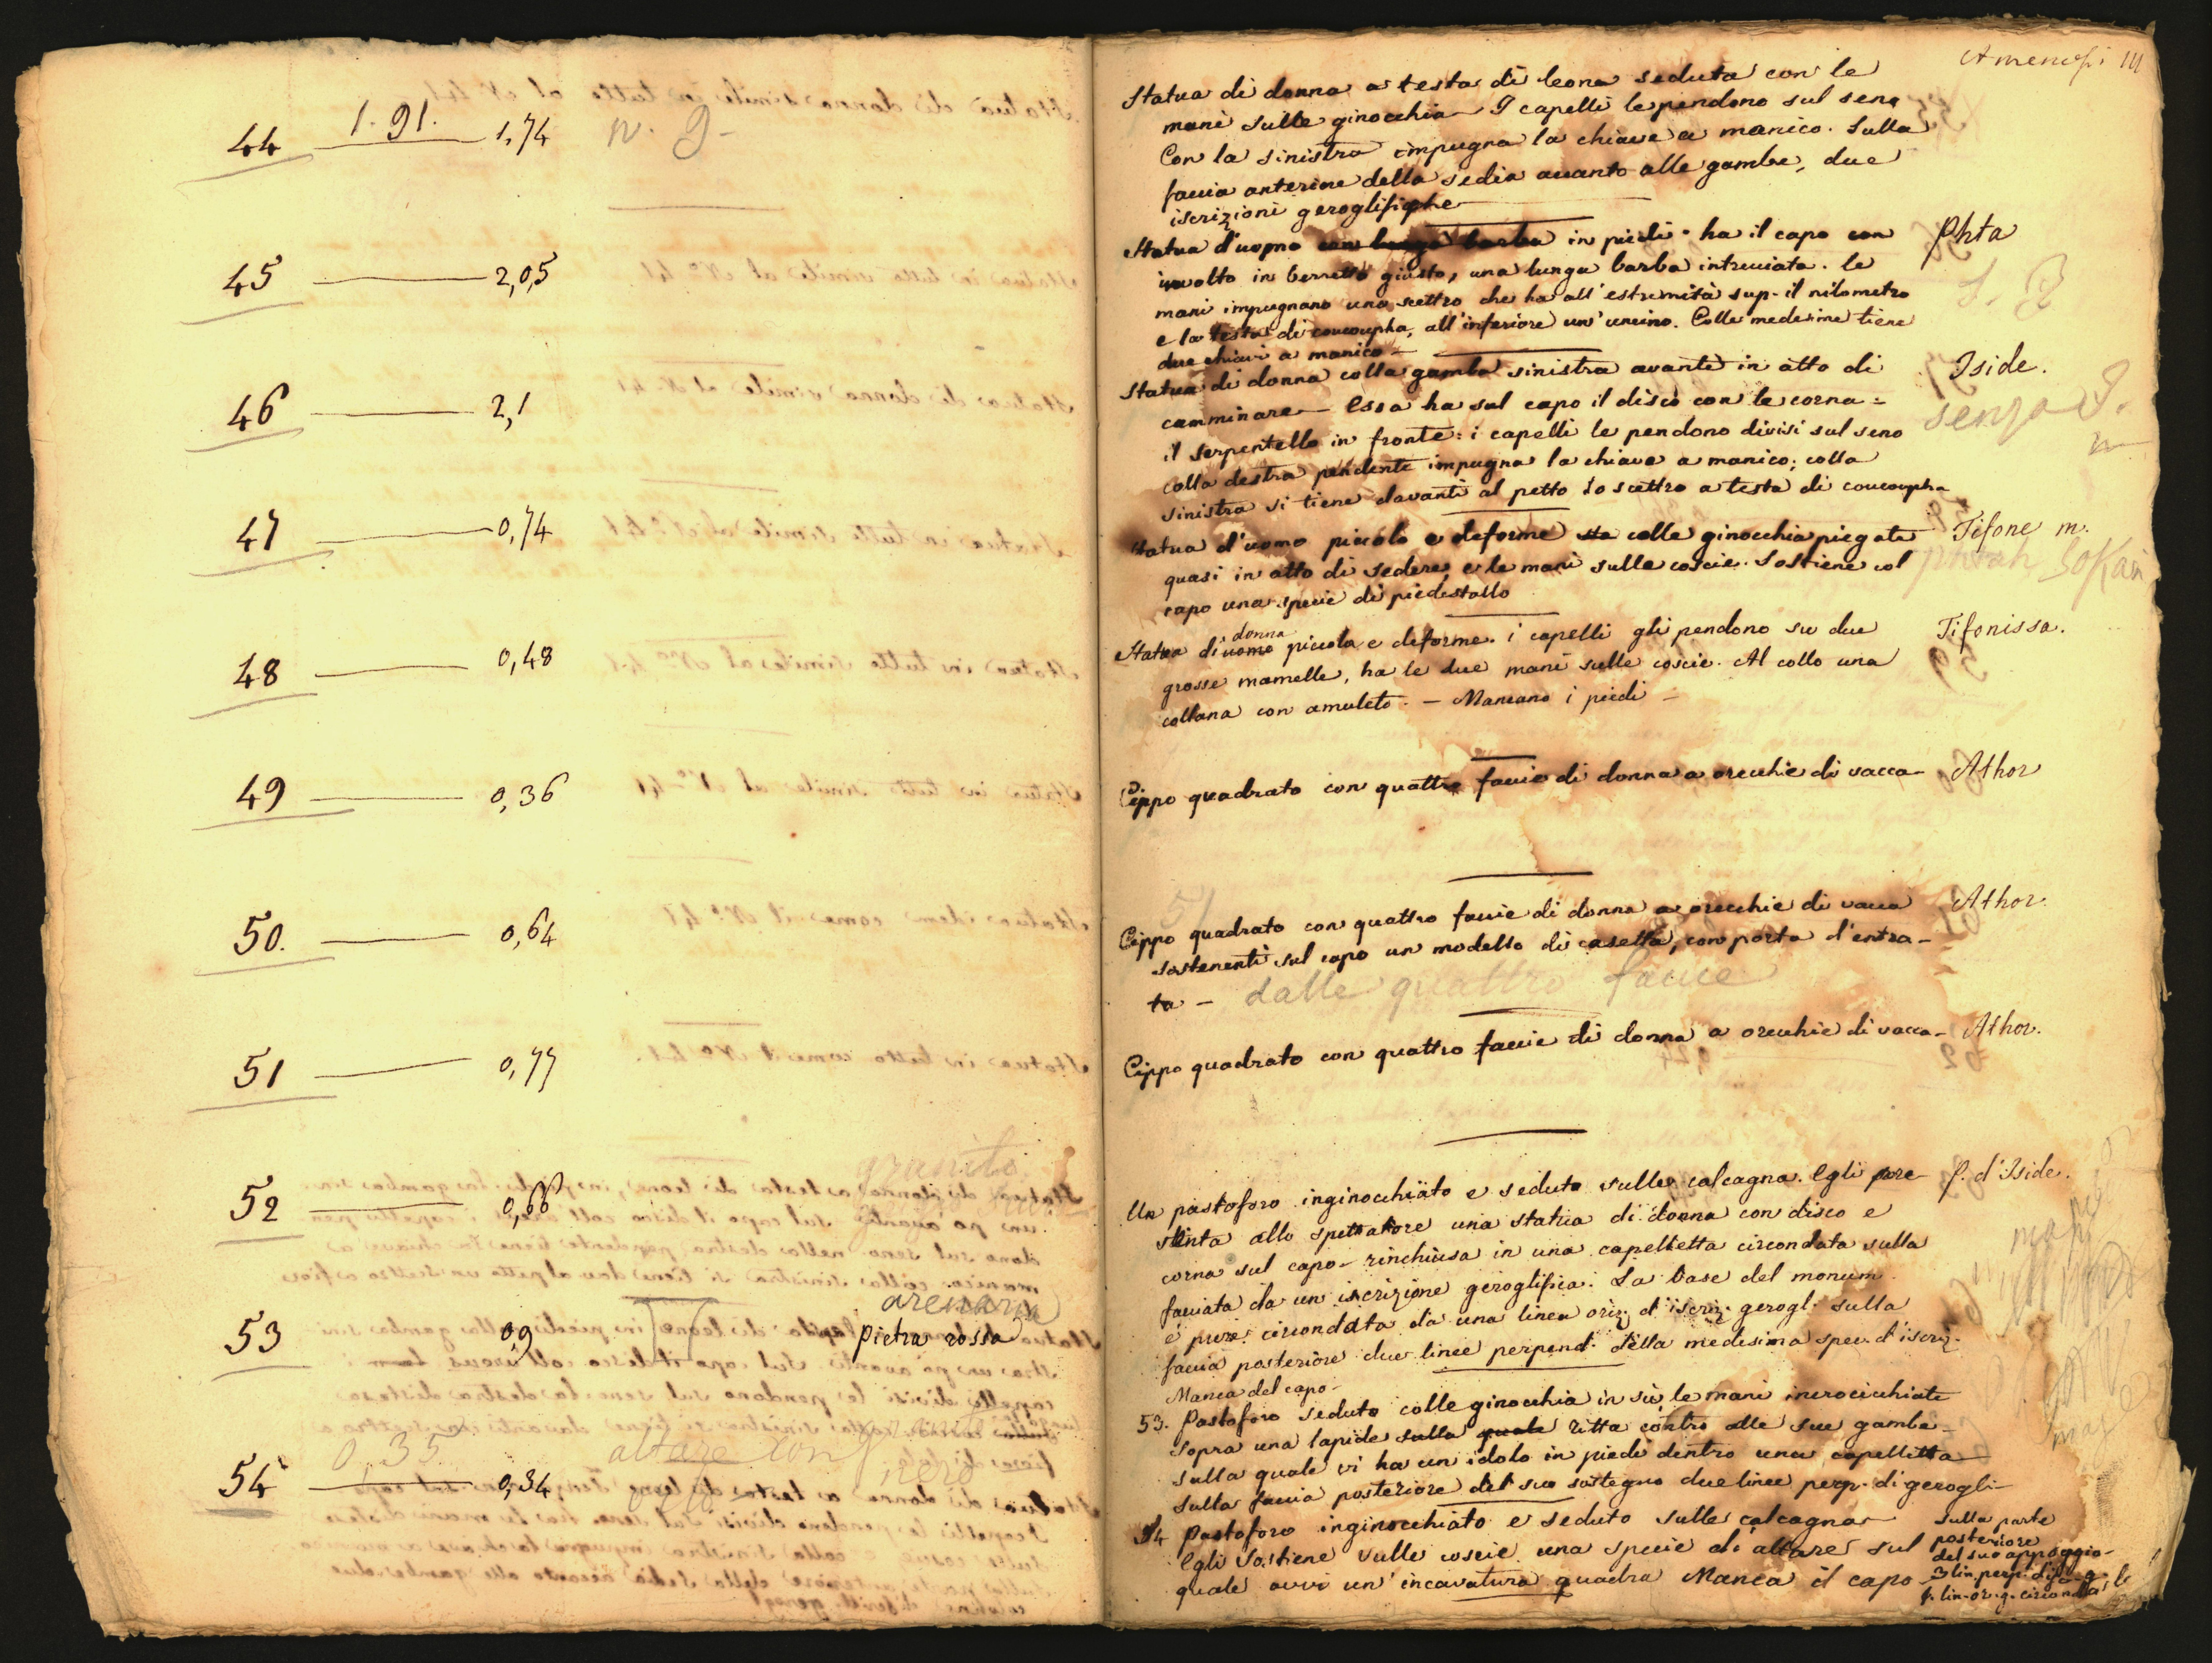 44 1. 91. 1,74 N. g-
45 2,05
46 2,1
47 0,74
48 0,48
49 0,36
50. 0,64
51 0,77
granito
52 0,66
arenaria
53 0,9 pietra rossa
granito
54 0,35 0,34 altare con nero
Amenofi III
Statua di donna a testa di leona seduta con le
mani sulle ginocchia I capelli le pendono sul seno
Con la sinistra impugna la chiave a manico. Sulla
faccia anteriore della sedia avanto alle gambe, due
iscrizioni geroglifiche
Statua d'uomo con lunga barba in piedi. ha il capo con Phta
involto in berretto giusto, una lunga barba intrecciata. le
mani impugnano uno scettro che ha all'estremità sup. il nilometro
e la testa di coucoupha, all'inferiore un'uncino. Colle medesime tiene
due chiavi a manico -
Statua di donna colla gamba sinistra avanti in atto di Iside.
camminare - Essa ha sul capo il disco con le corna = senza
il serpentello in fronte: i capelli le pendono divisi sul seno
colla destra pendente impugna la chiave a manico; colla
sinistra si tiene davanti al petto lo scettro a testa di coucoupha
Statua d'uomo piccolo e deforme sta colle ginocchia piegate Tifone m.
quasi in atto di sedere, e le mani sulle coscie. Sostiene col phtah Sokari
capo una specie di piedestallo
Statua di uomo donna piccola e deforme. i capelli gli pendono su due Tifonissa.
grosse mamelle, ha le due mani sulle coscie. Al collo una
collana con amuleto. - Mancano i piedi -
Cippo quadrato con quattro faccie di donna a orecchie di vacca - Athor
51
Cippo quadrato con quattro faccie di donna a orecchie di vacca Athor.
sostenenti sul capo un modello di casetta, con porta d'entra-
ta - dalle quattro facce
Cippo quadrato con quattro faccie di donna a orecchie di vacca - Athor.
Un pastoforo inginocchiato e seduto sulle calcagna. Egli pre- f. d'Iside.
senta allo spettatore una statua di donna con disco e
corna sul capo - rinchiusa in una capelletta circondata sulla
facciata da un'iscrizione geroglifica. La base del monum.
è pure circondata da una linea oriz. d'iscriz. gerogl. sulla
faccia posteriore due linee perpend. della medesima spec. d'iscriz.
Manca del capo -
53. Pastoforo seduto colle ginocchia in sù, le mani incrocicchiate
sopra una lapide sulla quale ritta contro alle sue gambe -
sulla quale vi ha un idolo in piedi dentro una capelletta
sulla faccia posteriore del suo sostegno due linee perp. di gerogli-
54 Pastoforo inginocchiato e seduto sulle calcagna
Egli sostiene sulle coscie una specie di altare sul
quale avvi un'incavatura quadra Manca il capo -
sulla parte
posteriore
del suo appoggio -
3 lin. perp. di g.
1. lin. or. g. circonda la b